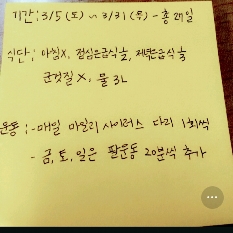 기간; 3/5 (토) ~ 3/31 (목) - 총 27일
식단; 아침X, 점심은급식½, 저녁은급식⅓
군것질 X, 물 3L
운동; -매일 마일리 사이러스 다리 1회씩
- 금, 토, 일은 팔운동 20분씩 추가